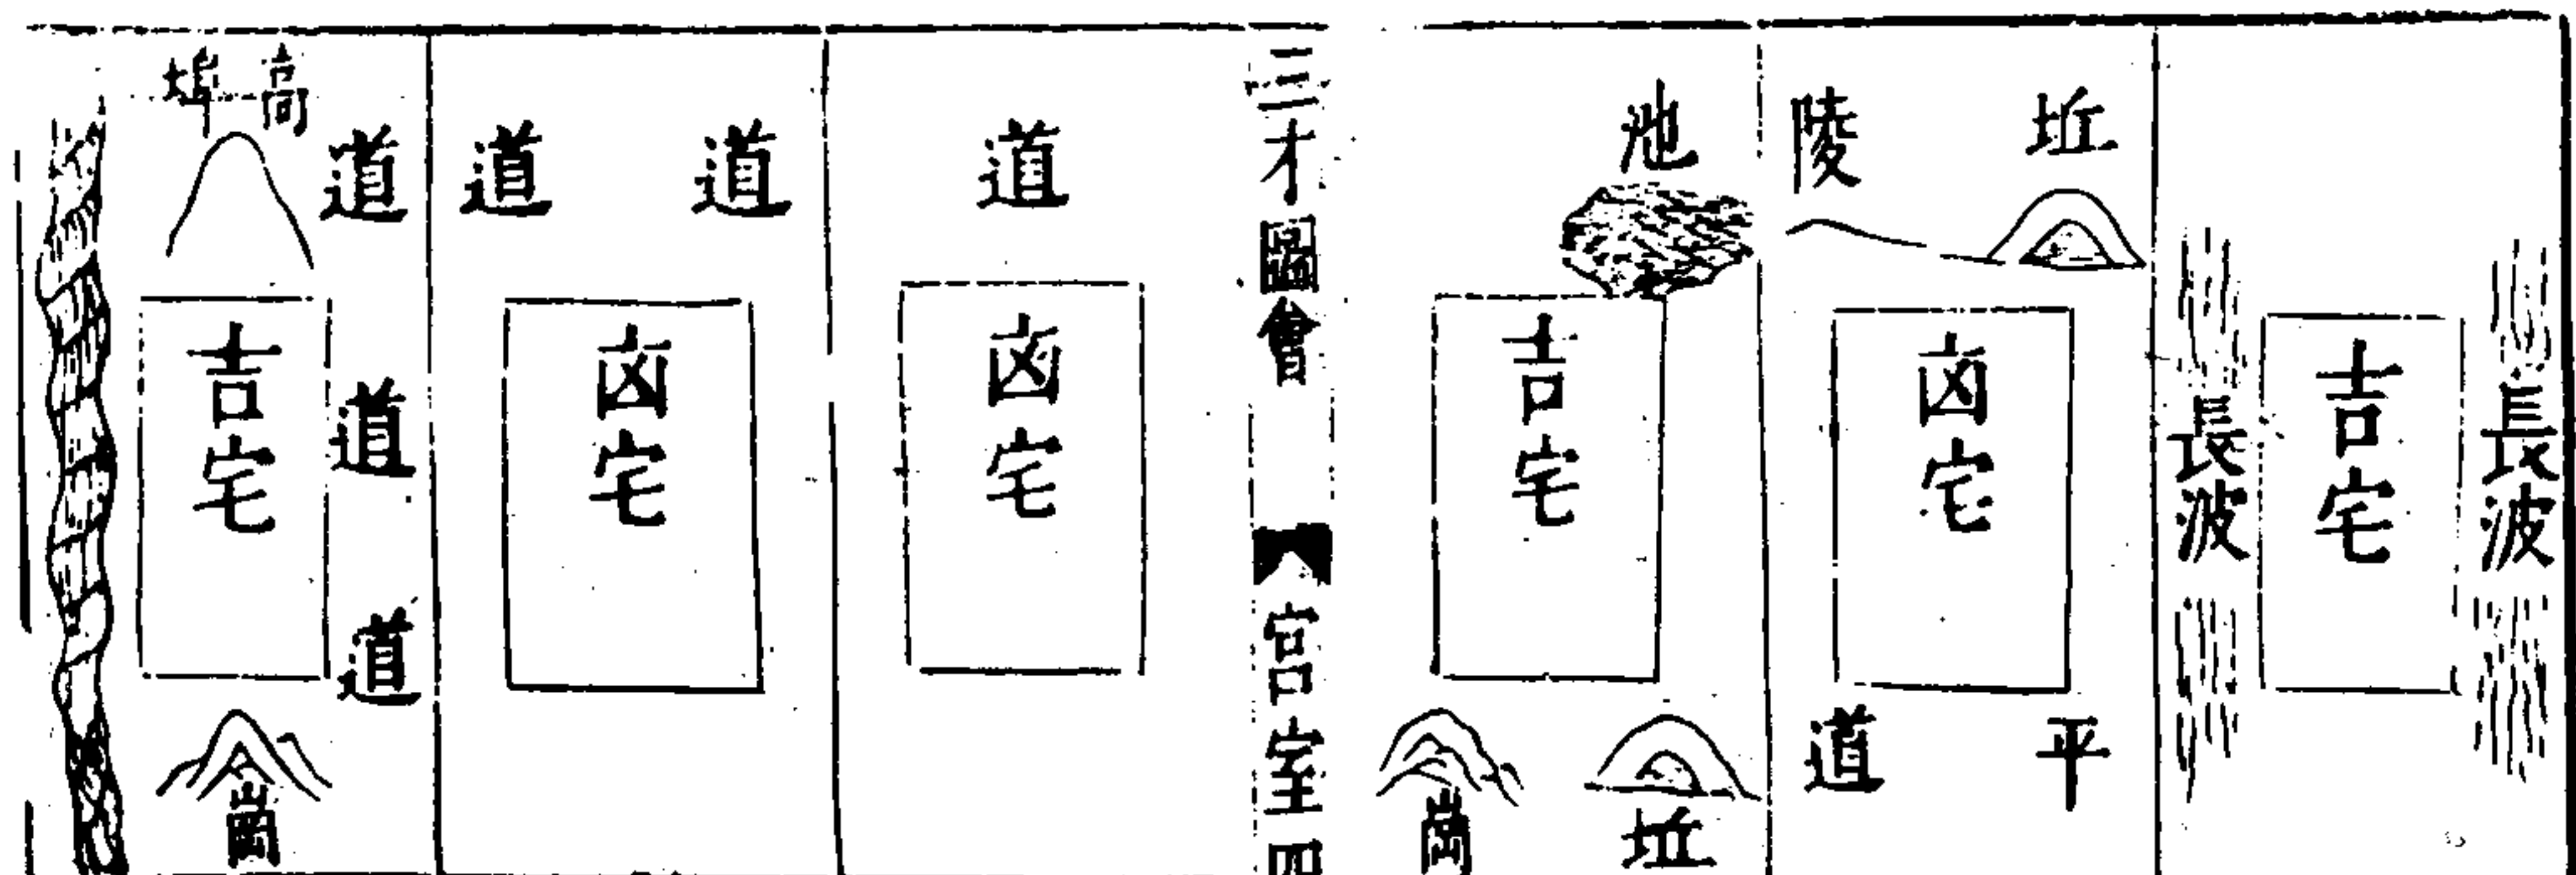 長波
吉宅
長波
坵
陵
凶宅
平
道
池
吉宅
坵
崗
三才圖會
宮室四
道
凶宅
道
道
凶宅
道
道
道
高
埠
吉宅
崗